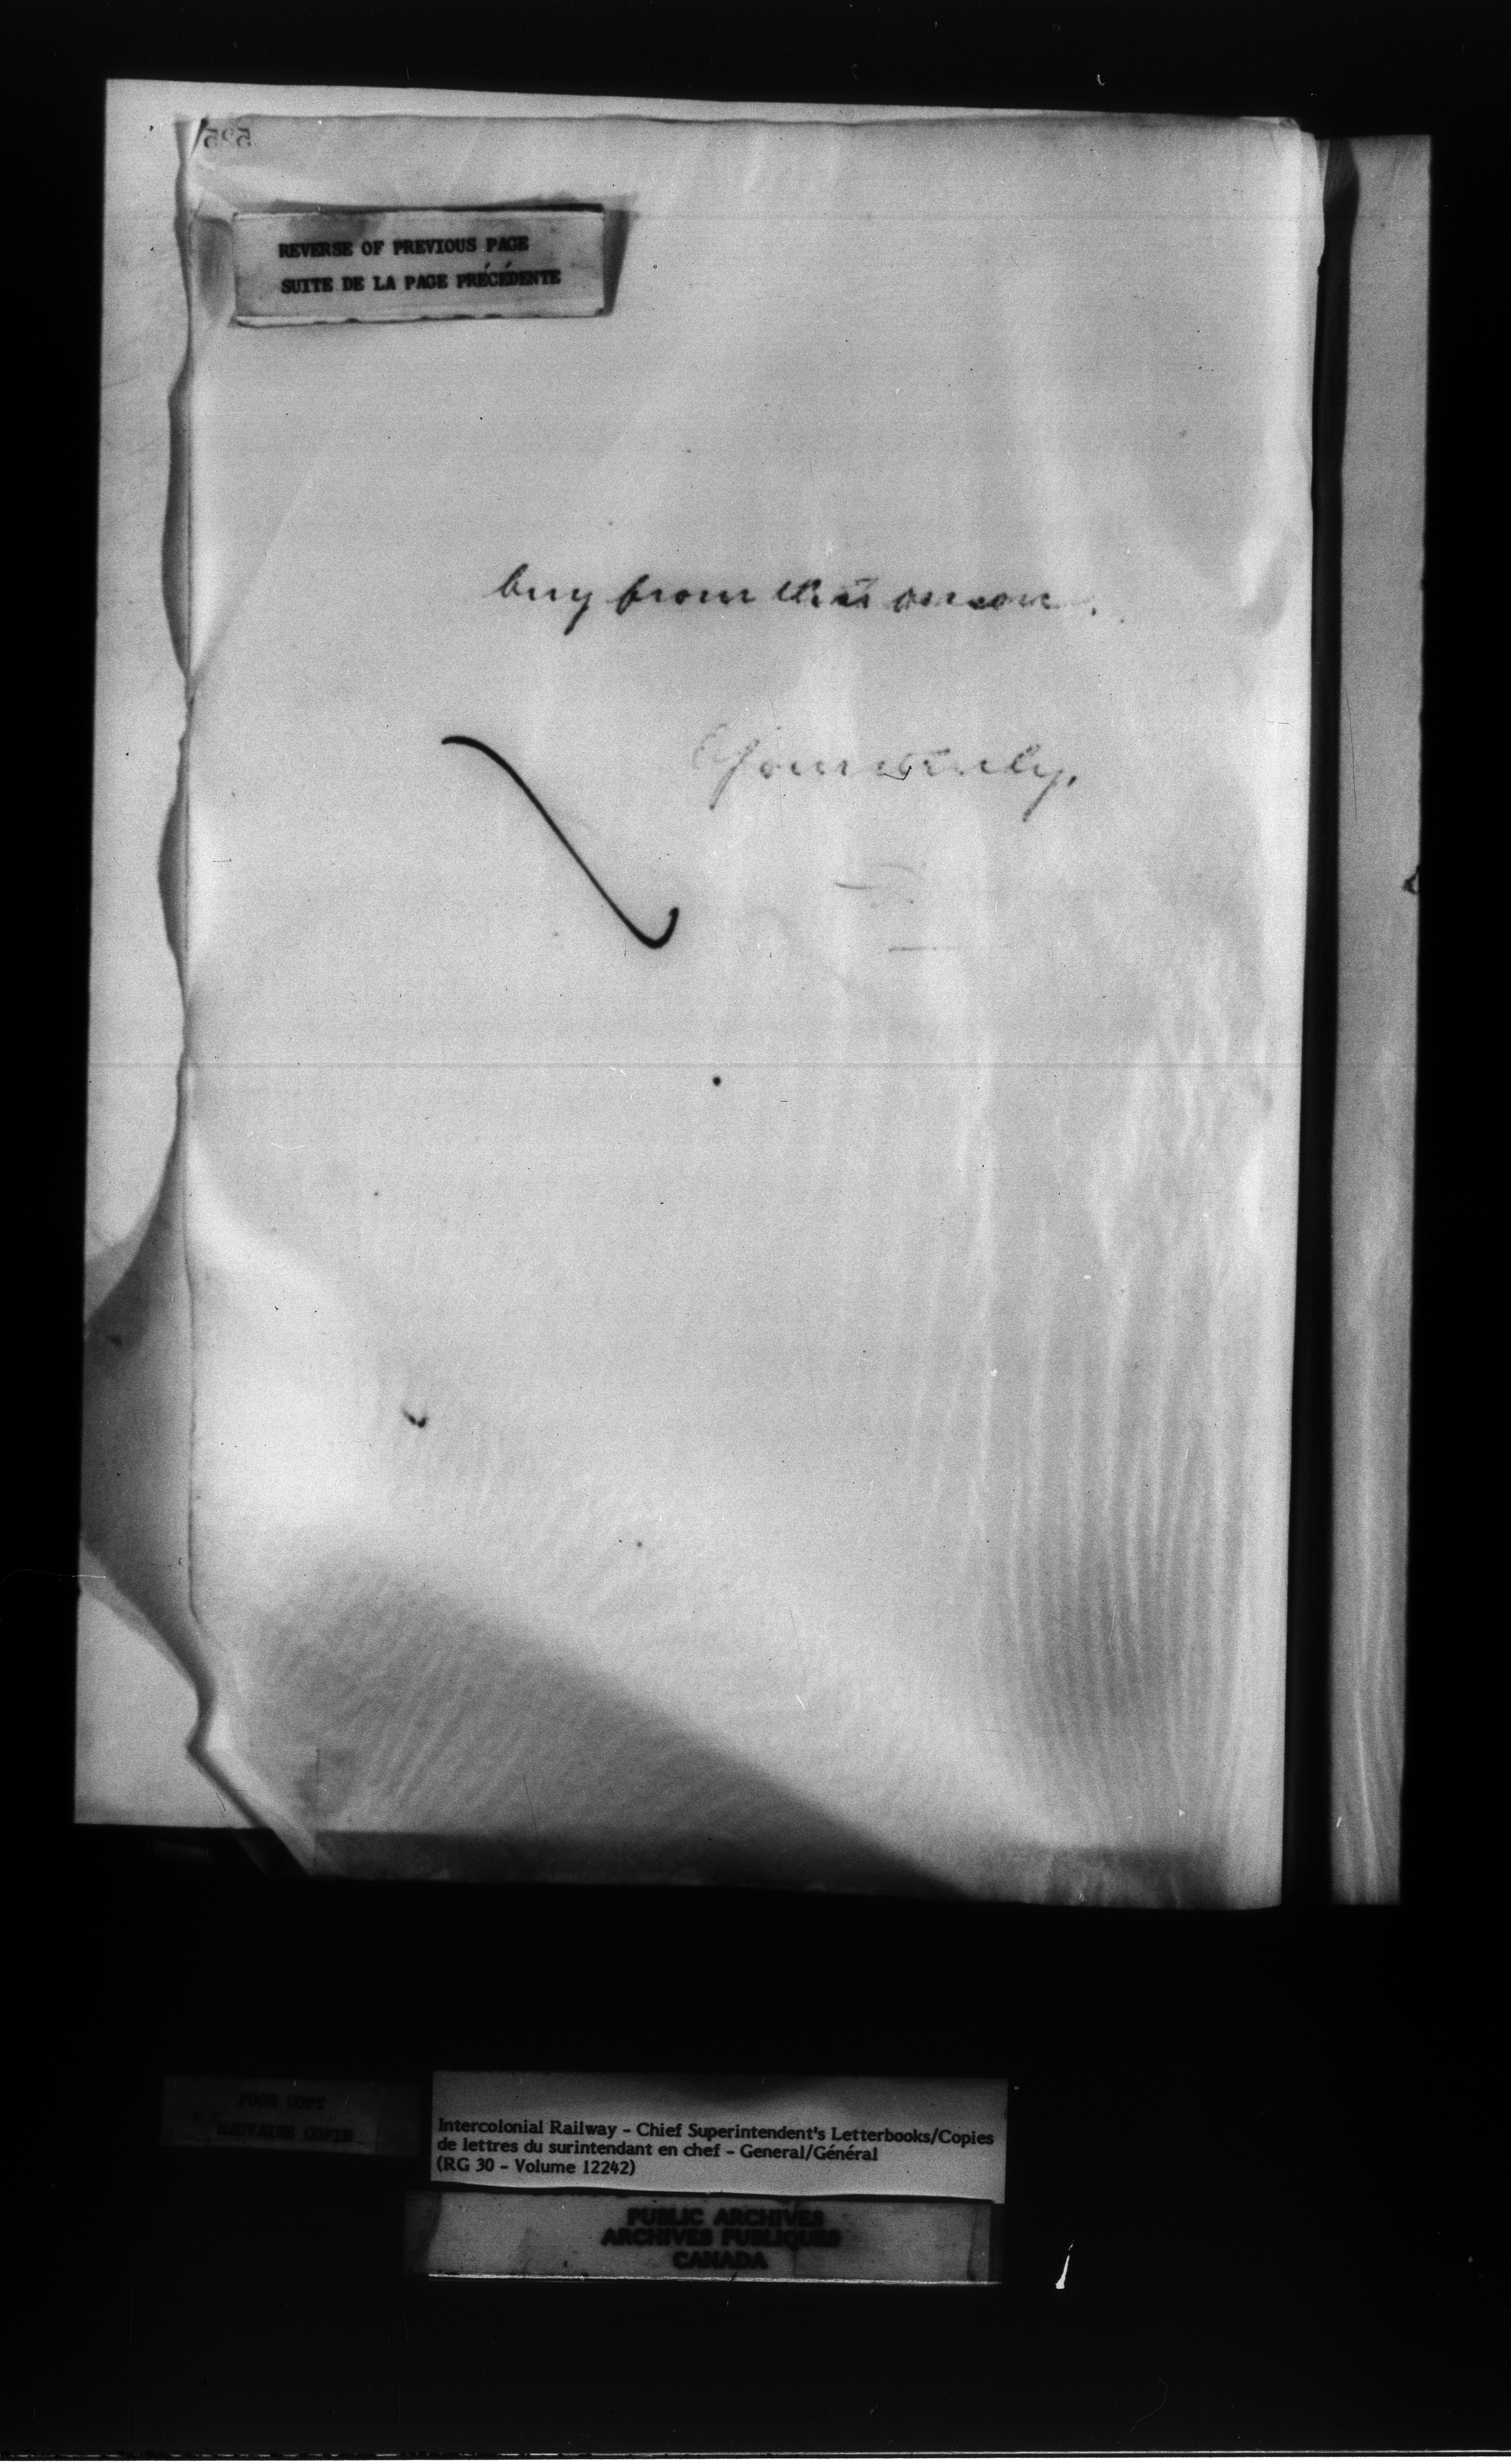 525
REVERSE OF PREVIOUS PAGE
SUITE DE LA PAGE PRÉCÉDENTE
buy from
Yours truly,
POOR COPY
MAUVAISE COPIE
Intercolonial Railway - Chief Superintendent's Letterbooks/Copies
de lettres du surintendant en chef - General/Général
(RG 30 - Volume 12242)
PUBLIC ARCHIVES
ARCHIVES PUBLIQUES
CANADA